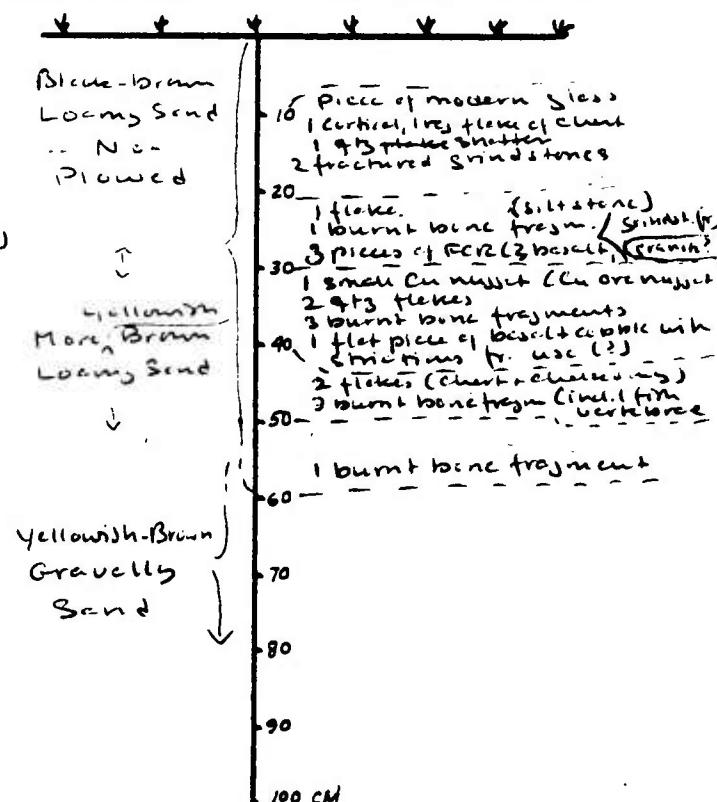 Black-brown
Loamy Sand
Non
Plowed
Yellowish
More Brown
Loamy Sand
Yellowish-Brown
Gravelly
Sand
10
20
30
40
50
60
70
80
90
100 CM
piece of modern glass
1 cortical, lrg flake of chert
1 qtz flake shatter
2 fractured grindstones
1 flake. (siltstone)
1 burnt bone fragm. grindst. fr.
3 pieces of FCR (2 basalt, granit?
1 small Cu nugget (Cu ore nugget
2 qtz flakes
3 burnt bone fragments
1 flat piece of basalt cobble with
striations fr. use (?)
2 flakes (chert + chalcedony)
3 burnt bone fragm (incl. 1 fish
vertebrae
1 burnt bone fragment